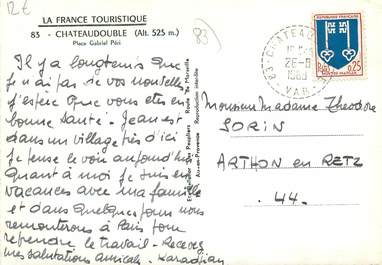 12€
LA FRANCE TOURISTIQUE
83 - CHATEAUDOUBLE (Alt. 525 m.)
Place Gabriel Péri
83
Il y a longtemps que
je n'ai pas de vos nouvelles
j'espère que vous etes en
bonne santé - Jean est
dans un village près d'ici
je pense le voir aujourd'hui
Quant à moi je suis en
vacances avec ma famille
et dans quelques jours nous
remonterons à Paris pour
reprendre le travail - Recevez
mes salutations amicales. Karadjian
des Peupliers Route de Marseille
Aix-en-Provence Reproduction interdite
CHATEAU
26-8
VAR
0,25
Monsieur Madame Théodore
SORIN
ARTHON en RETZ
44.